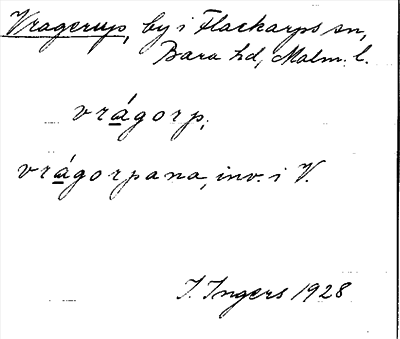 Vragerup, by i Flackarps sn,
Bara hd, Malm. l.
vrágorp;
vrágorpana, inv. i V.
I. Ingers 1928